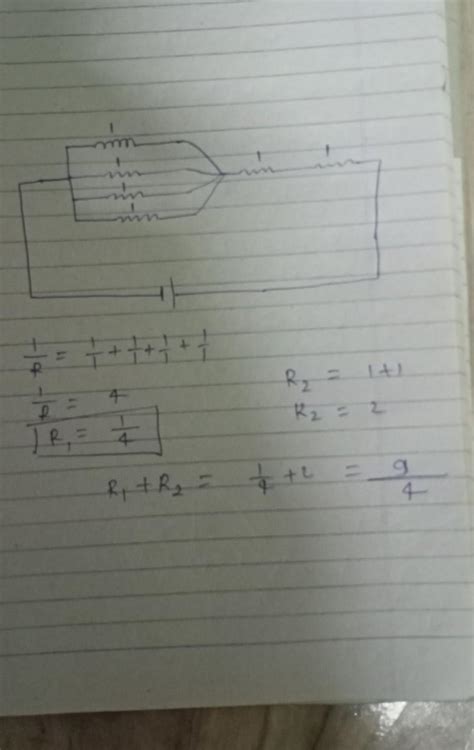 1
1 1 1
1
1
1/R = 1/1 + 1/1 + 1/1 + 1/1
1/R = 4
R₁ = 1/4
R₂ = 1+1
R₂ = 2
R₁ + R₂ = 1/4 + 2 = 9/4